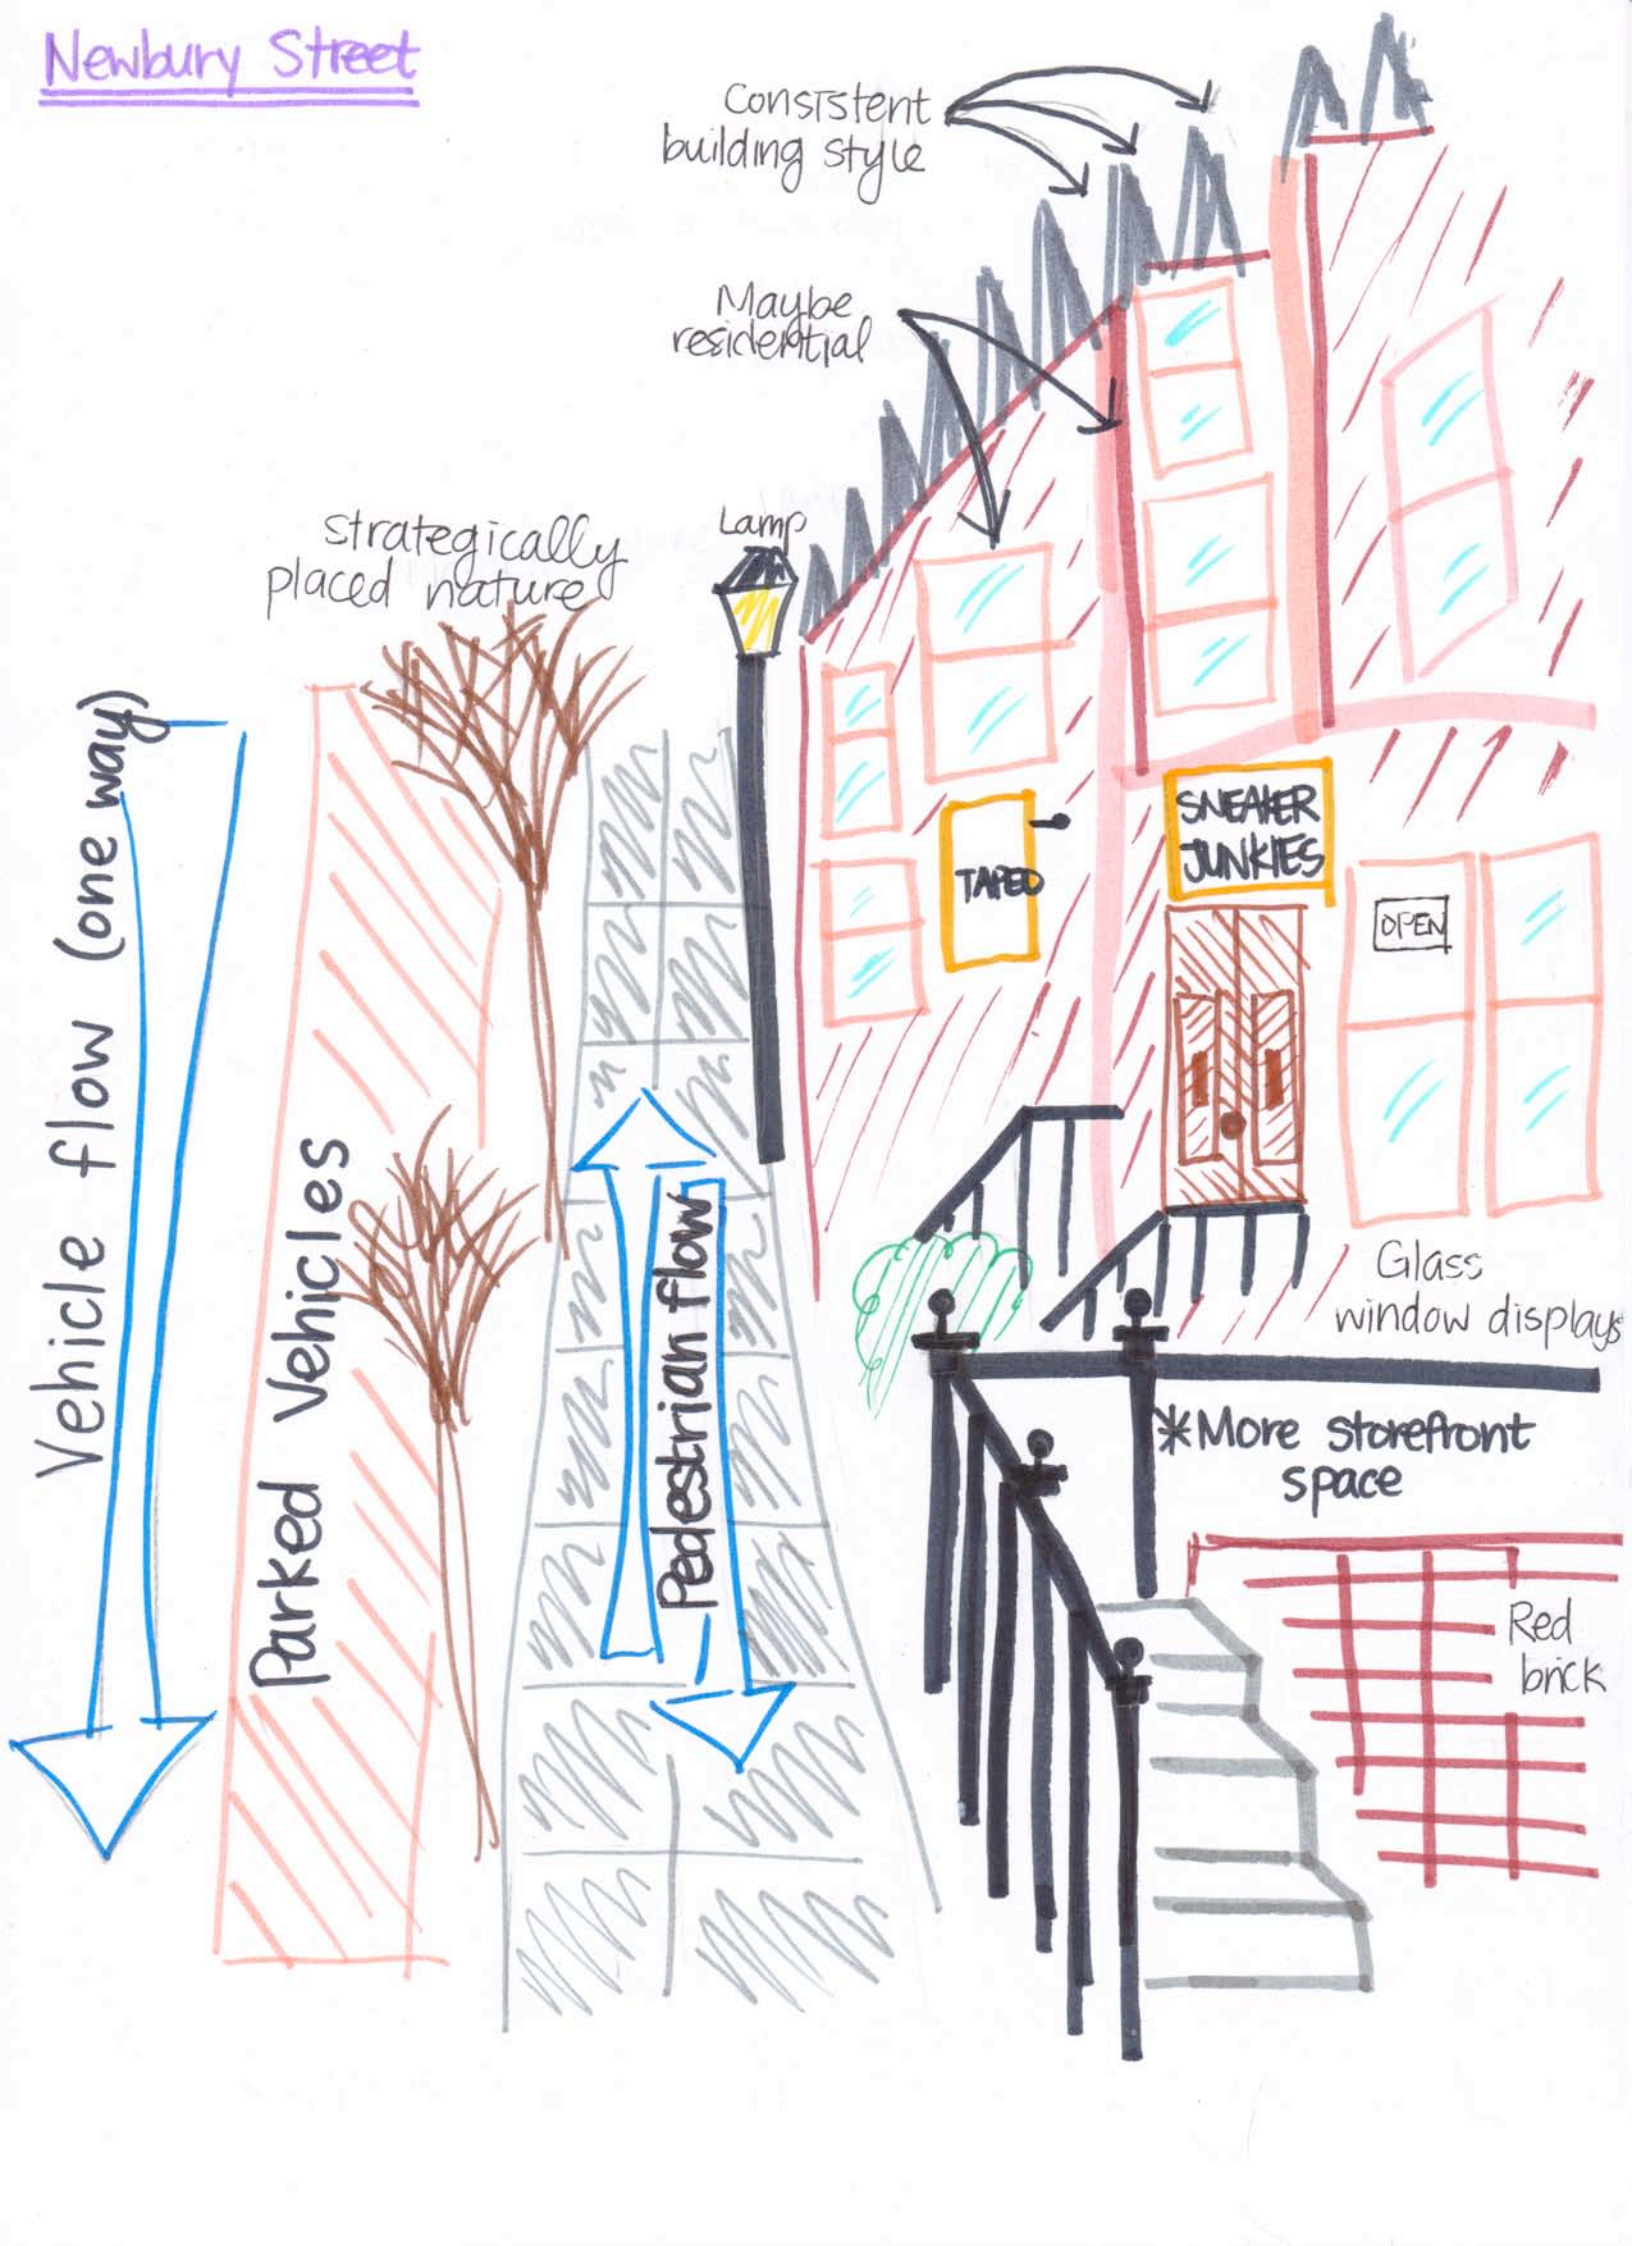 Newbury Street
Consistent
building style
Maybe
residential
strategically
placed nature
Lamp
Vehicle flow (one way)
Parked Vehicles
Pedestrian flow
TAPED
SNEAKER
JUNKIES
OPEN
Glass
window displays
*More storefront
space
Red
brick